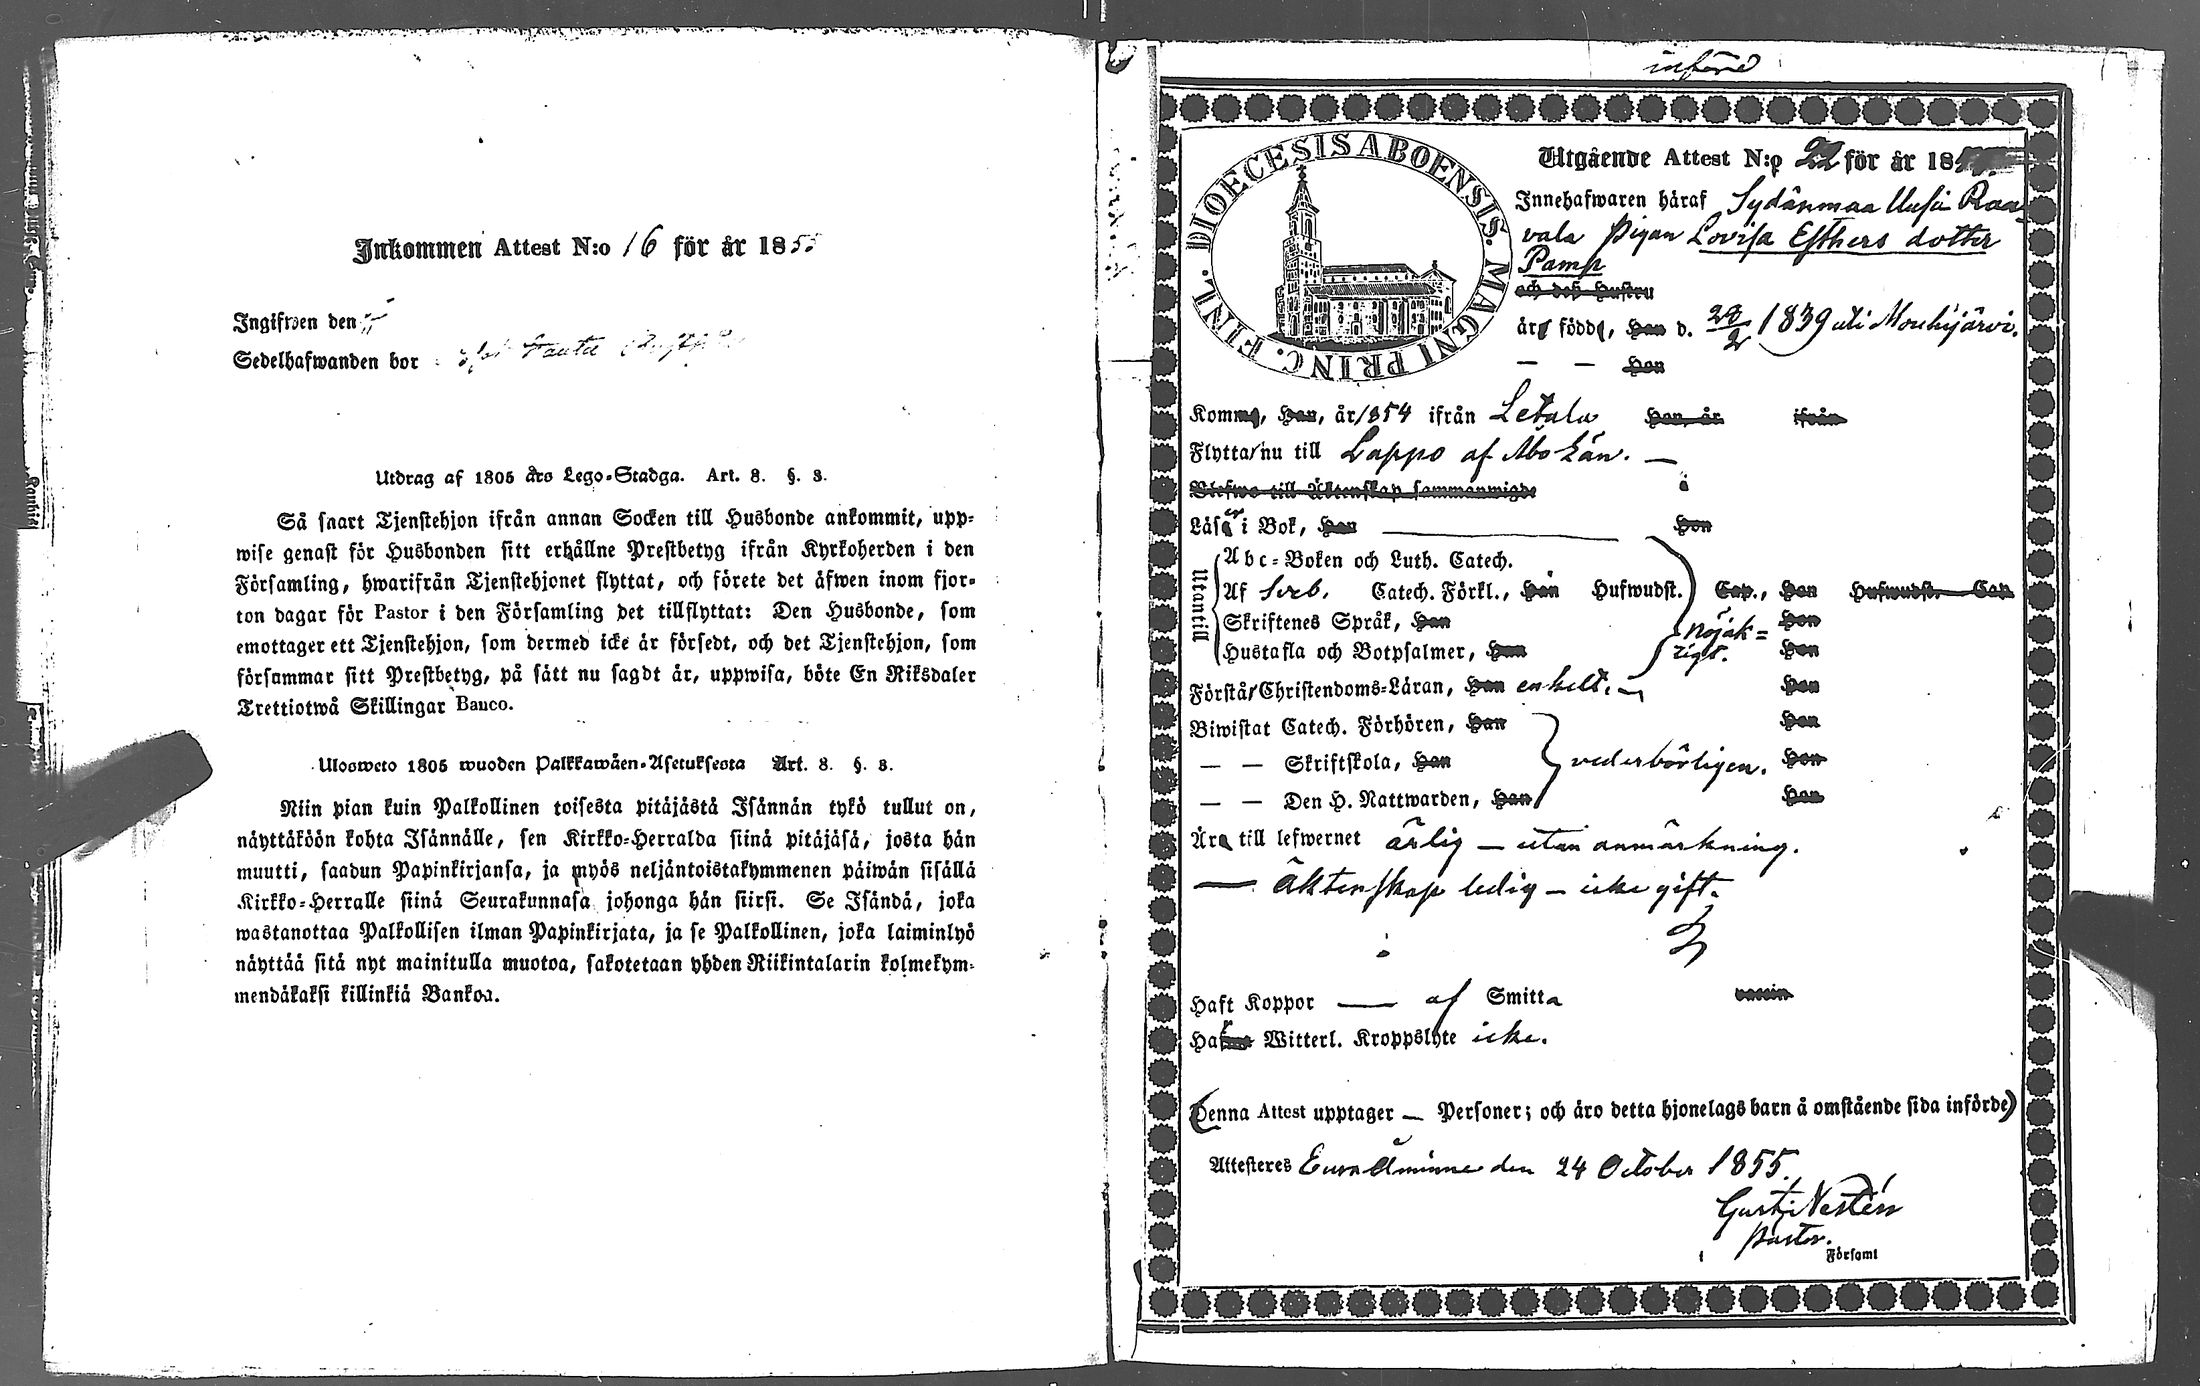 Inkommen Attest N:o 16 för år 1855
Ingifwen den
Sedelhafwanden bor
Utdrag af 1805 års Lego-Stadga. Art. 8. §. 8.
Så snart Tjenstehjon ifrån annan Socken till Husbonde ankommit, upp-
wise genast för Husbonden sitt erhållne Prestbetyg ifrån Kyrkoherden i den
Församling, hwarifrån Tjenstehjonet flyttat, och förete det äfwen inom fjor-
ton dagar för Pastor i den Församling det tillflyttat: Den Husbonde, som
emottager ett Tjenstehjon, som dermed icke är försedt, och det Tjenstehjon, som
försummar sitt Prestbetyg, på sätt nu sagdt är, uppwisa, böte En Riksdaler
Trettiotwå Skillingar Banco.
Ulosweto 1805 wuoden Palkkawäen-Asetuksesta Art. 8. §. 8.
Niin pian kuin Palkollinen toisesta pitäjästä Isännän tykö tullut on,
näyttäköön kohta Isännälle, sen Kirkko-Herralda siinä pitäjäsä, josta hän
muutti, saadun Papinkirjansa, ja myös neljäntoistakymmenen päiwän sisällä
Kirkko-Herralle siinä Seurakunnasa johonga hän siirsi. Se Isändä, joka
wastanottaa Palkollisen ilman Papinkirjata, ja se Palkollinen, joka laiminlyö
näyttää sitä nyt mainitulla muotoa, sakotetaan yhden Riikintalarin kolmekym-
mendäkaksi killinkiä Bankoa.
införd
DIOECESIS ABOENSIS. MAGNI PRINC. FINL.
Utgående Attest N:o 22 för år 1855.
Innehafwaren häraf Sydänmaa Uusi Raa-
vala Pigan Lovisa Esthers dotter
Pamp
och des Hustru
är född, Han d. 28/2 1839 uti Mouhijärvi.
— — Hon
Komm, Han, år 1854 ifrån Letala Hon, år ifrån
Flytta nu till Lappo af Åbo Län. —
Blefwo till Äktenskap sammanwigde
Läser i Bok, Han — Hon
Utantill
Abc-Boken och Luth. Catech.
Af Sveb. Catech. Förkl., Han Hufwudst. Cap., Hon Hufwudst. Cap.
Skriftenes Språk, Han Hon
Hustafla och Botpsalmer, Han nöjak=
rigt. Hon
Förstår Christendoms-Läran, Han enkelt. Hon
Biwistat Catech. Förhören, Han Hon
— — Skriftskola, Han vederbörligen. Hon
— — Den H. Nattwarden, Han Hon
Är till lefwernet ärlig — utan anmärkning.
— Äktenskap ledig — icke gift.
Haft Koppor — af Smitta vaccin
Har Witterl. Kroppslyte icke.
(Denna Attest upptager — Personer; och äro detta hjonelags barn å omstående sida införde)
Attesteres Eura Åminne den 24 October 1855.
Gust. Nestén
Pastor.
Församl